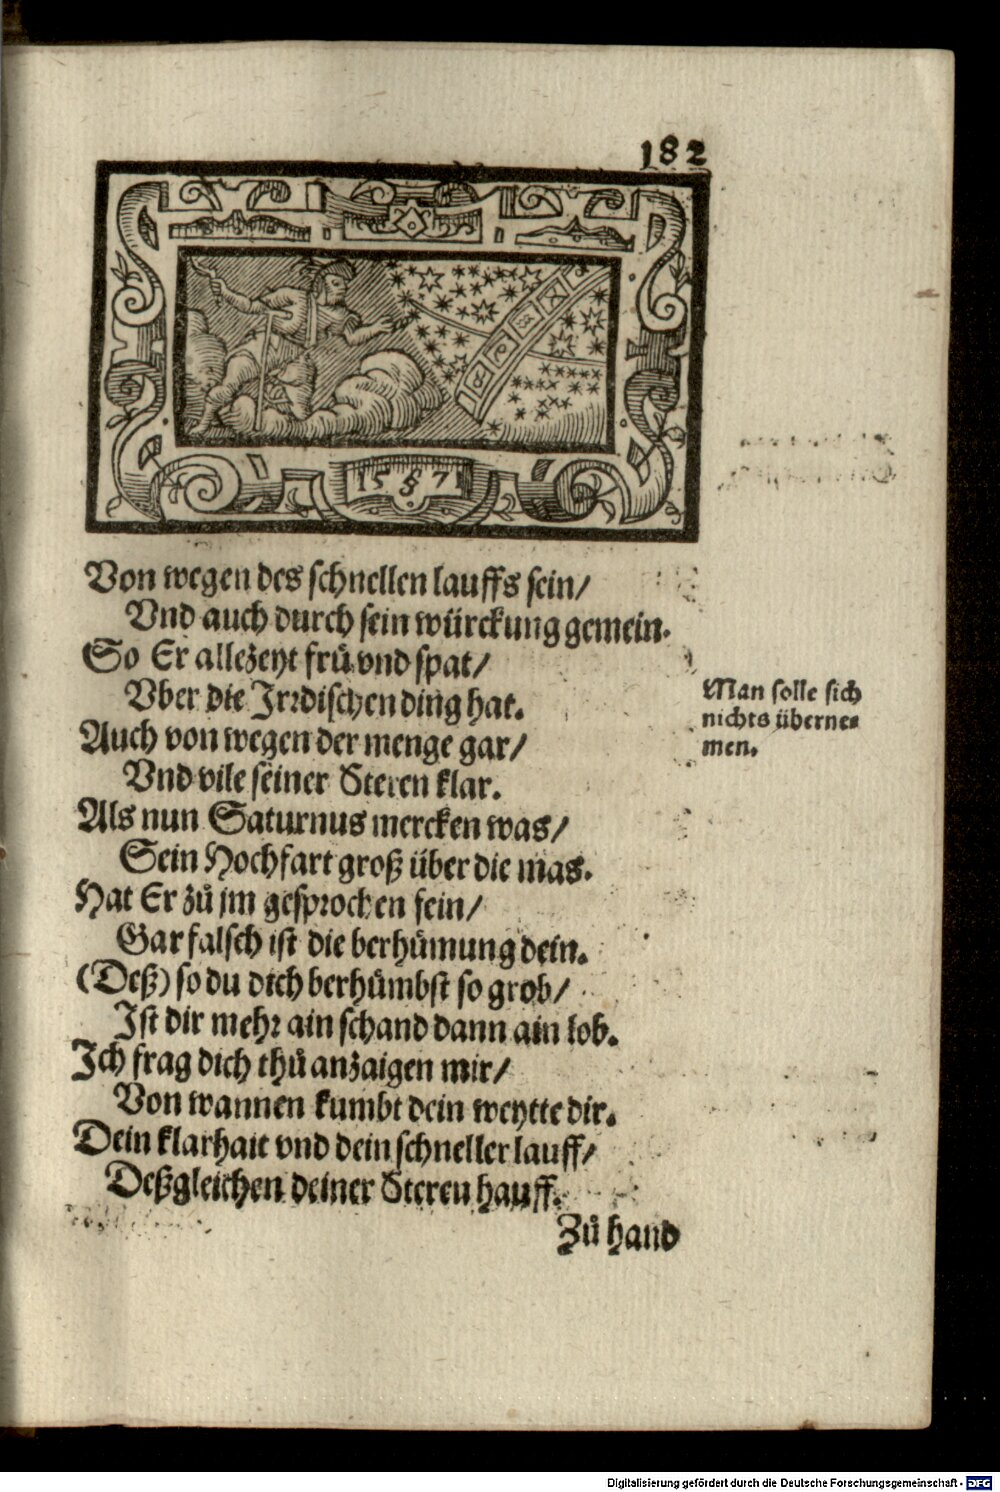 182
15 § 71
Von wegen des schnellen lauffs sein/
Vnd auch durch sein würckung gemein.
So Er allezeyt frů vnd spat/
Vber die Jrrdischen ding hat.
Man solle sich
nichts überne=
men.
Auch von wegen der menge gar/
Vnd vile seiner Steren klar.
Als nun Saturnus mercken was/
Sein Hochfart groß über die mas.
Hat Er zů jm gesprochen fein/
Gar falsch ist die berhůmung dein.
(Deß) so du dich berhůmbst so grob/
Jst dir mehr ain schand dann ain lob.
Jch frag dich thů anzaigen mir/
Von wannen kumbt dein weytte dir.
Dein klarhait vnd dein schneller lauff/
Deßgleichen deiner Steren hauff.
Zů hand
Digitalisierung gefördert durch die Deutsche Forschungsgemeinschaft - DFG